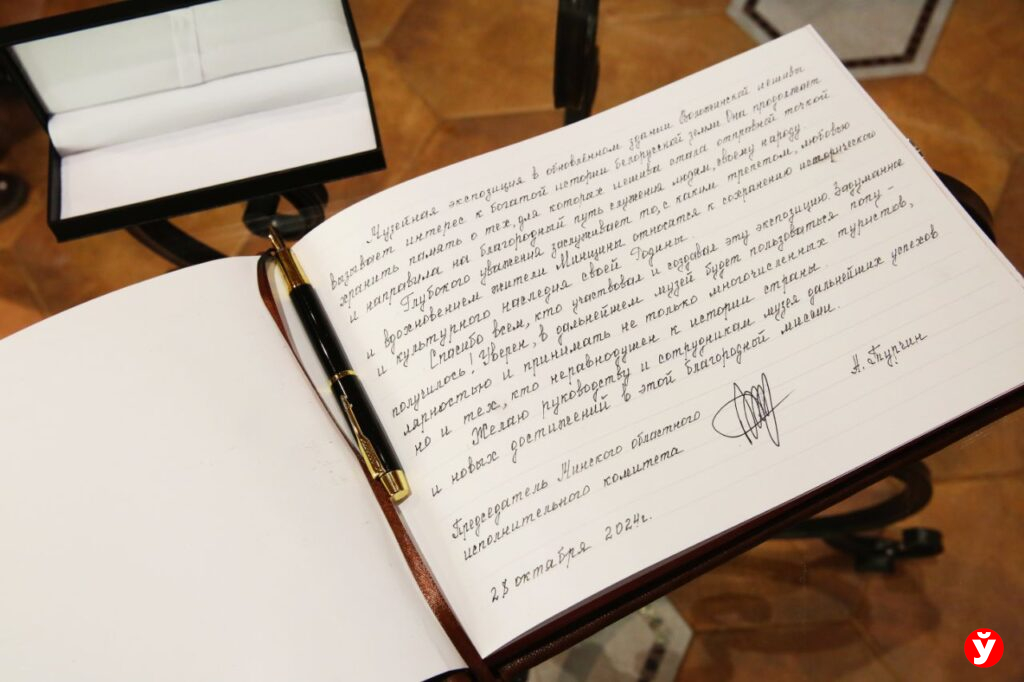 Музейная экспозиция в обновлённом здании Воложинской иешивы
вызывает интерес к богатой истории белорусской земли. Она продолжает
хранить память о тех, для которых иешива стала отправной точкой
и направила на благородный путь служения людям, своему народу.
Глубокого уважения заслуживает то, с каким трепетом, любовью
и вдохновением жители Минщины относятся к сохранению исторического
и культурного наследия своей Родины.
Спасибо всем, кто участвовал и создавал эту экспозицию. Задуманное
получилось! Уверен, в дальнейшем музей будет пользоваться попу-
лярностью и принимать не только многочисленных туристов,
но и тех, кто неравнодушен к истории страны.
Желаю руководству и сотрудникам музея дальнейших успехов
и новых достижений в этой благородной миссии.
Председатель Минского областного
исполнительного комитета
А. Турчин
28 октября 2024г.
ў